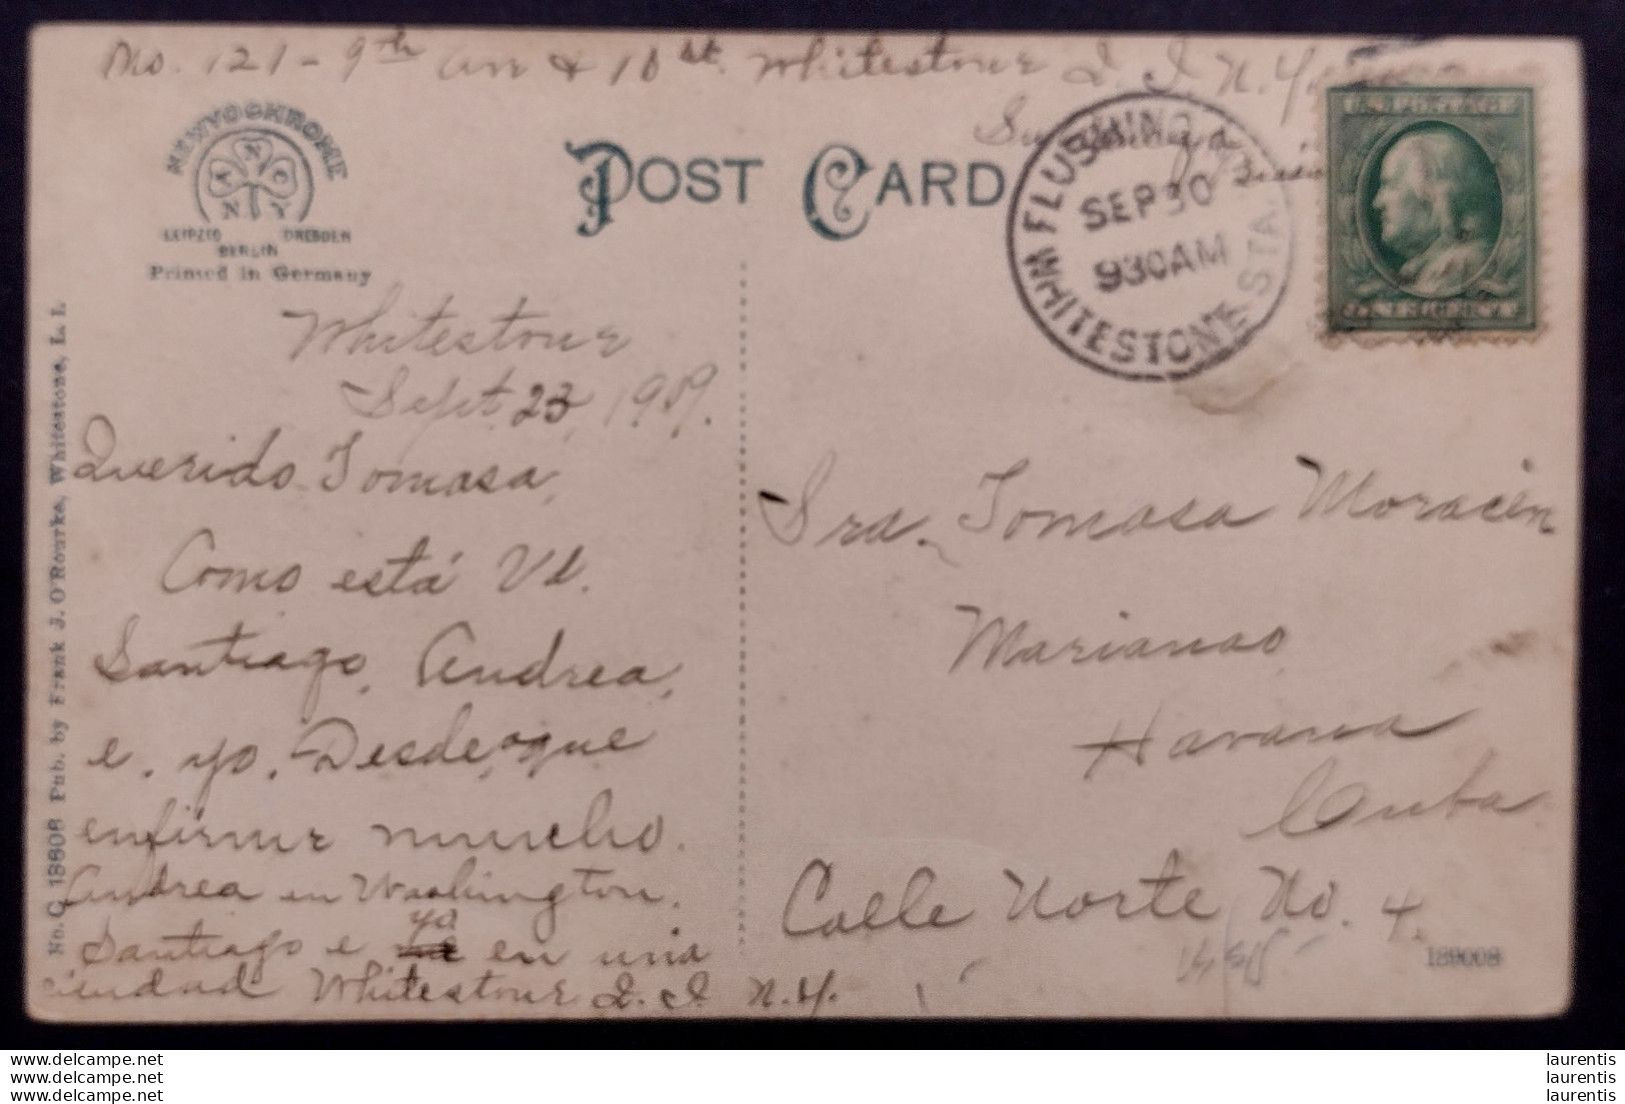 No. 121 - 9th Av & 10 st. Whitestone L. I. N. Y.
NEWYOCHROME
A N A C
N Y
LEIPZIG DRESDEN
BERLIN
Printed in Germany
POST CARD
FLUSHING
SEP 30
930AM
WHITESTONE STA.
Whitestone
Sept. 23, 1909.
Querido Tomasa,
Como está Vd.
Santiago, Andrea,
e. yo. Desde que
enfirme mucho.
Andrea en Washington.
Santiago e yo en una
ciudad Whitestone L. I. N. Y.
Sra. Tomasa Moracen
Marianao
Havana
Cuba
Calle Norte No. 4.
189008
No. C. 18808 Pub. by Frank J. O'Rourke, Whitestone, L. I.
laurentis
laurentis
laurentis
delcampe.net
delcampe.net
delcampe.net